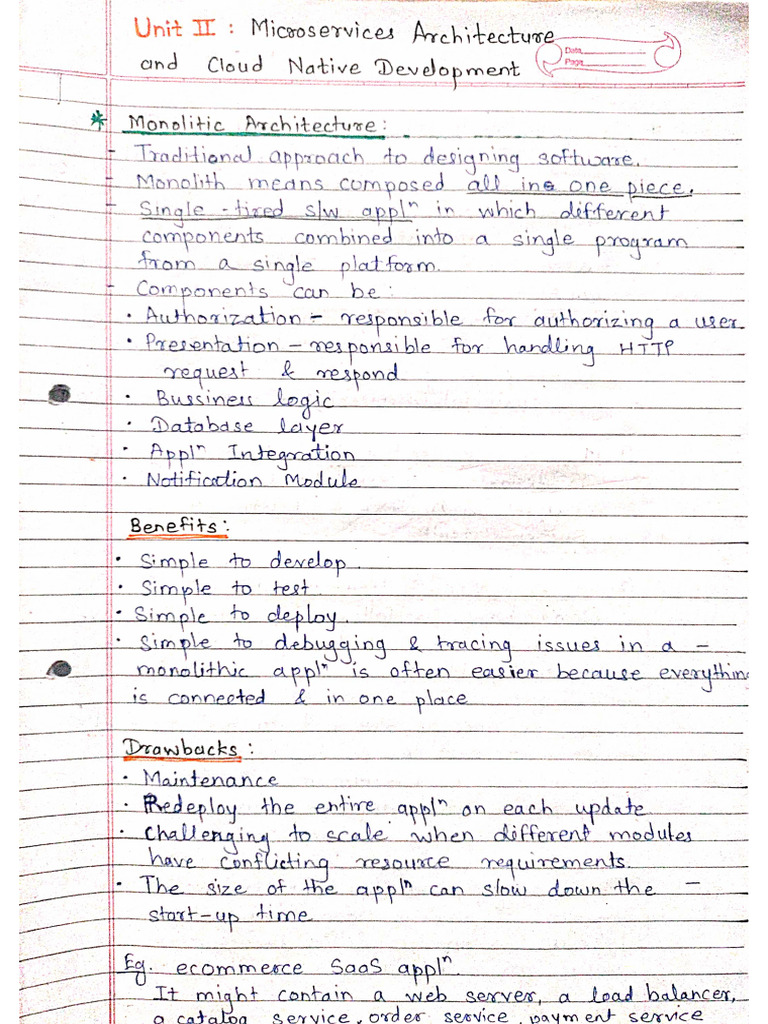 Unit II : Microservices Architecture
and Cloud Native Development
Date
Page
* Monolitic Architecture:
- Traditional approach to designing software.
- Monolith means composed all in one piece.
- Single-tired s/w applⁿ in which different
components combined into a single program
from a single platform.
- Components can be:
• Authorization - responsible for authorizing a user.
• Presentation - responsible for handling HTTP
request & respond
• Bussiness logic
• Database layer
• Applⁿ Integration
• Notification Module
Benefits:
• Simple to develop.
• Simple to test.
• Simple to deploy.
• Simple to debugging & tracing issues in a -
monolithic applⁿ is often easier because everything
is connected & in one place
Drawbacks:
• Maintenance
• Redeploy the entire applⁿ on each update
• Challenging to scale when different modules
have conflicting resource requirements.
• The size of the applⁿ can slow down the -
start-up time
Eg. ecommerce SaaS applⁿ.
It might contain a web server, a load balancer,
a catalog service, order service, payment service